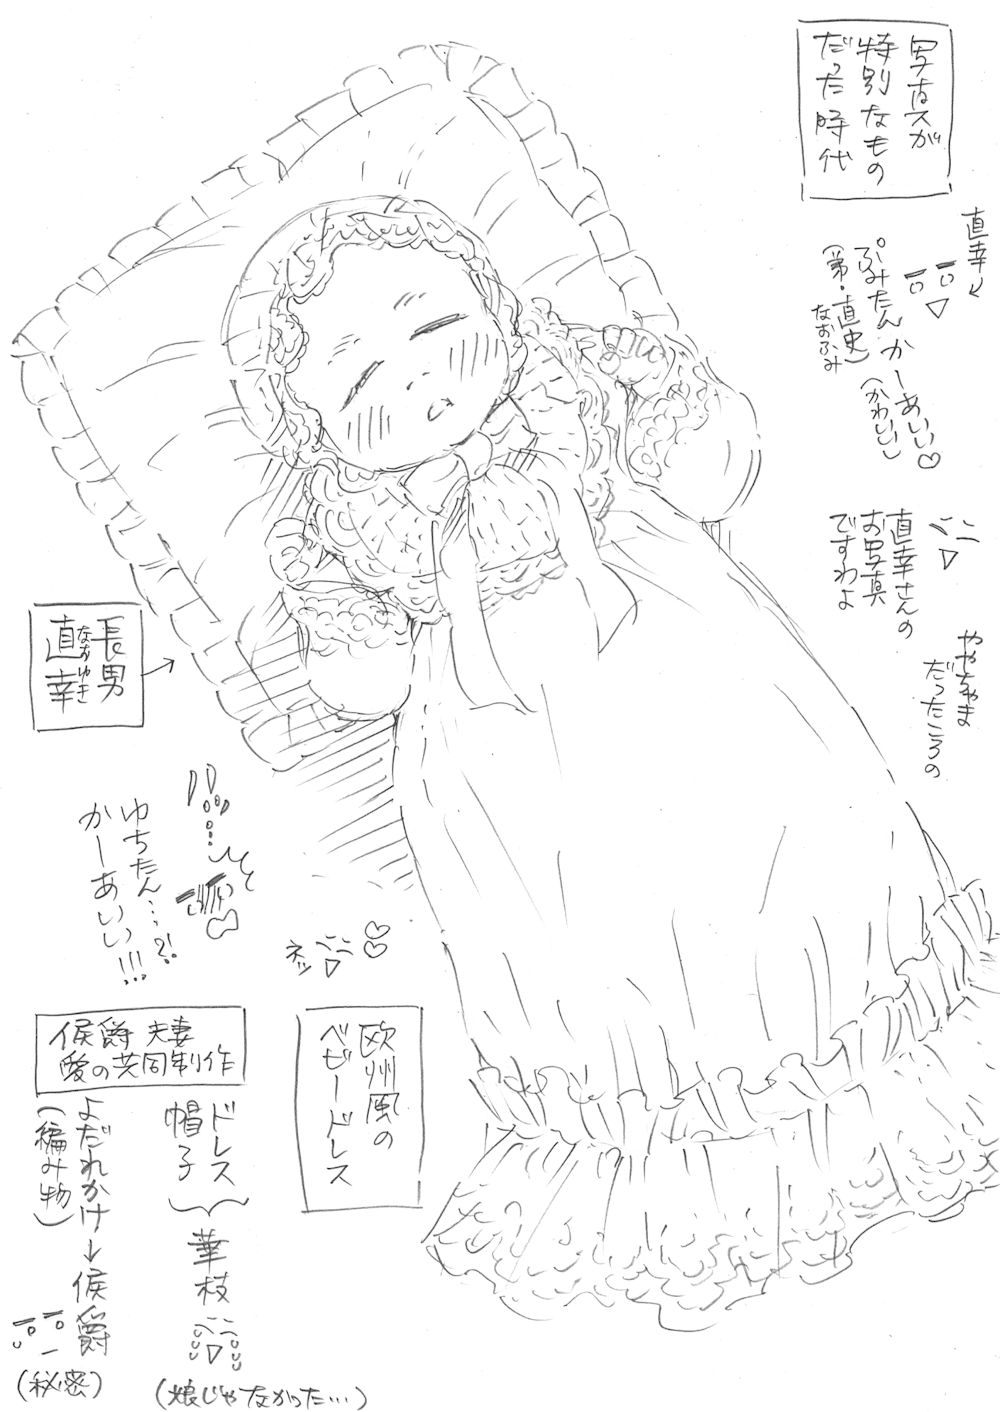 写真が
特別なもの
だった時代
直幸
ぷみたんかーあいい♡
(弟・直史)
なおふみ
(かわいい)
直幸さんの
お写真
ですわよ
ややちゃま
だったころの
長男
直幸
なおゆき
ゆちたん…?!
かーあいい!!!
ネッ
欧州風の
ベビードレス
侯爵夫妻
愛の共同制作
ドレス
帽子
華枝
(娘じゃなかった…)
よだれかけ→侯爵
(編み物)
(秘密)